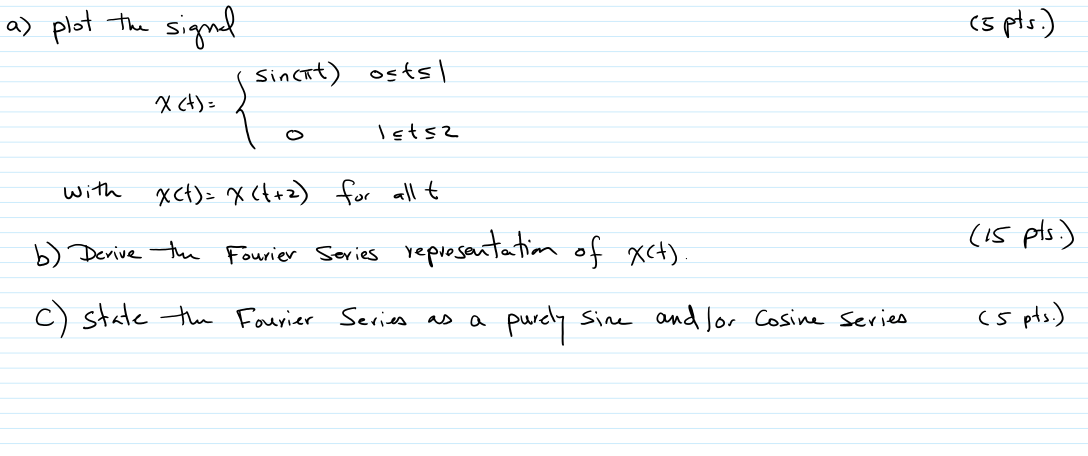 a) plot the signal (5 pts.)
sin(πt) 0≤t≤1
x(t)= {
0 1≤t≤2
with x(t)= x(t+2) for all t
b) Derive the Fourier Series representation of x(t). (15 pts.)
c) state the Fourier Series as a purely sine and/or cosine series (5 pts.)